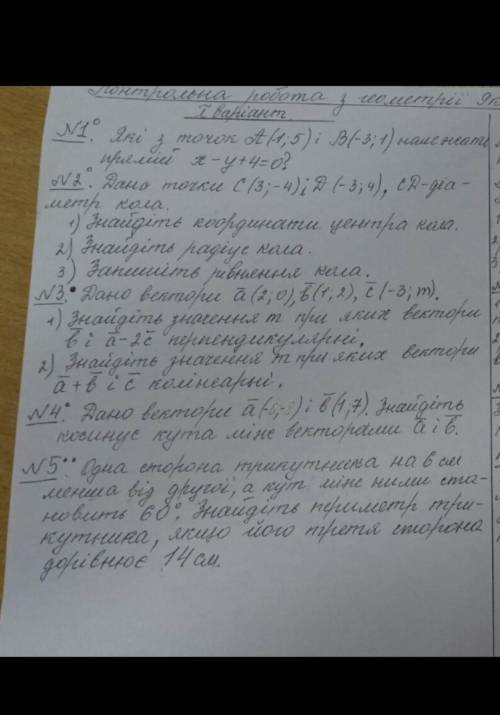 Контрольна робота з геометрії
I варіант
№1°. Які з точок А(-1; 5) і В(-3; 1) належать
прямій x-y+4=0?
№2°. Дано точки С(3; -4) і D(-3; 4), CD-діа-
метр кола.
1) Знайдіть координати центра кола.
2) Знайдіть радіус кола.
3) Запишіть рівняння кола.
№3.• Дано вектори a(2; 0), b(1; 2), c(-3; m).
1) Знайдіть значення m при яких вектори
b і a-2c перпендикулярні.
2) Знайдіть значення m при яких вектори
a+b і c колінеарні.
№4•. Дано вектори a і b(1; 7). Знайдіть
косинус кута між векторами a і b.
№5••. Одна сторона трикутника на 6 см
менша від другої, а кут між ними ста-
новить 60°. Знайдіть периметр три-
кутника, якщо його третя сторона
дорівнює 14 см.